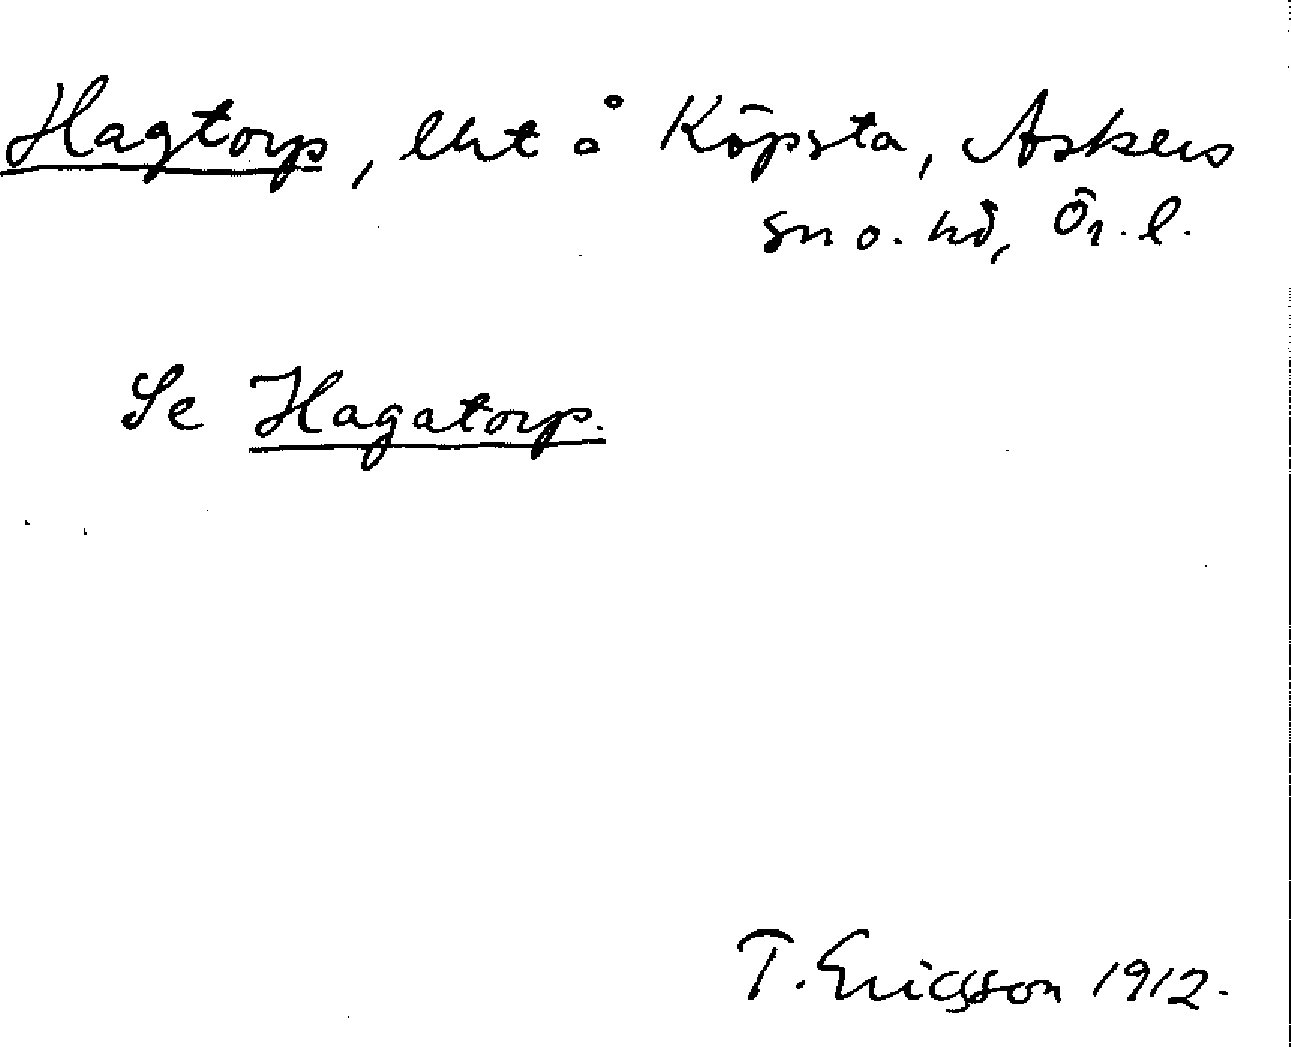 Hagtorp, lht å Köpsta, Askers
sn o. hd, Ör. l.
Se Hagatorp.
T. Ericsson 1912.